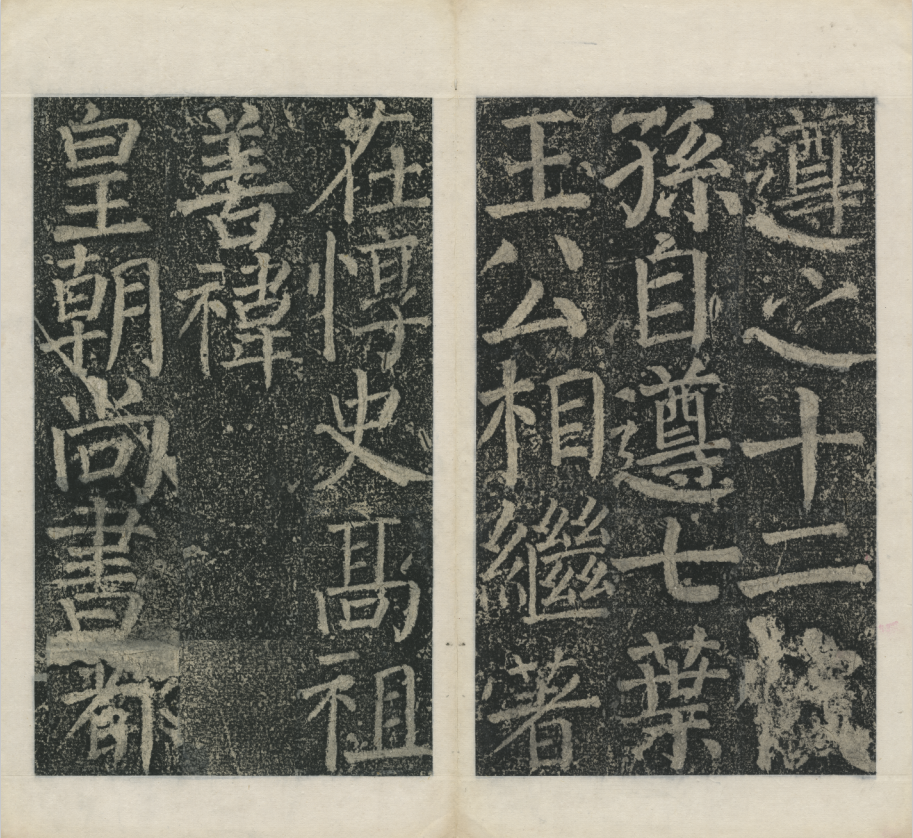 遵之十二
孫自遵七葉
王公相繼著
在惇史高祖
善禕
皇朝尚書都